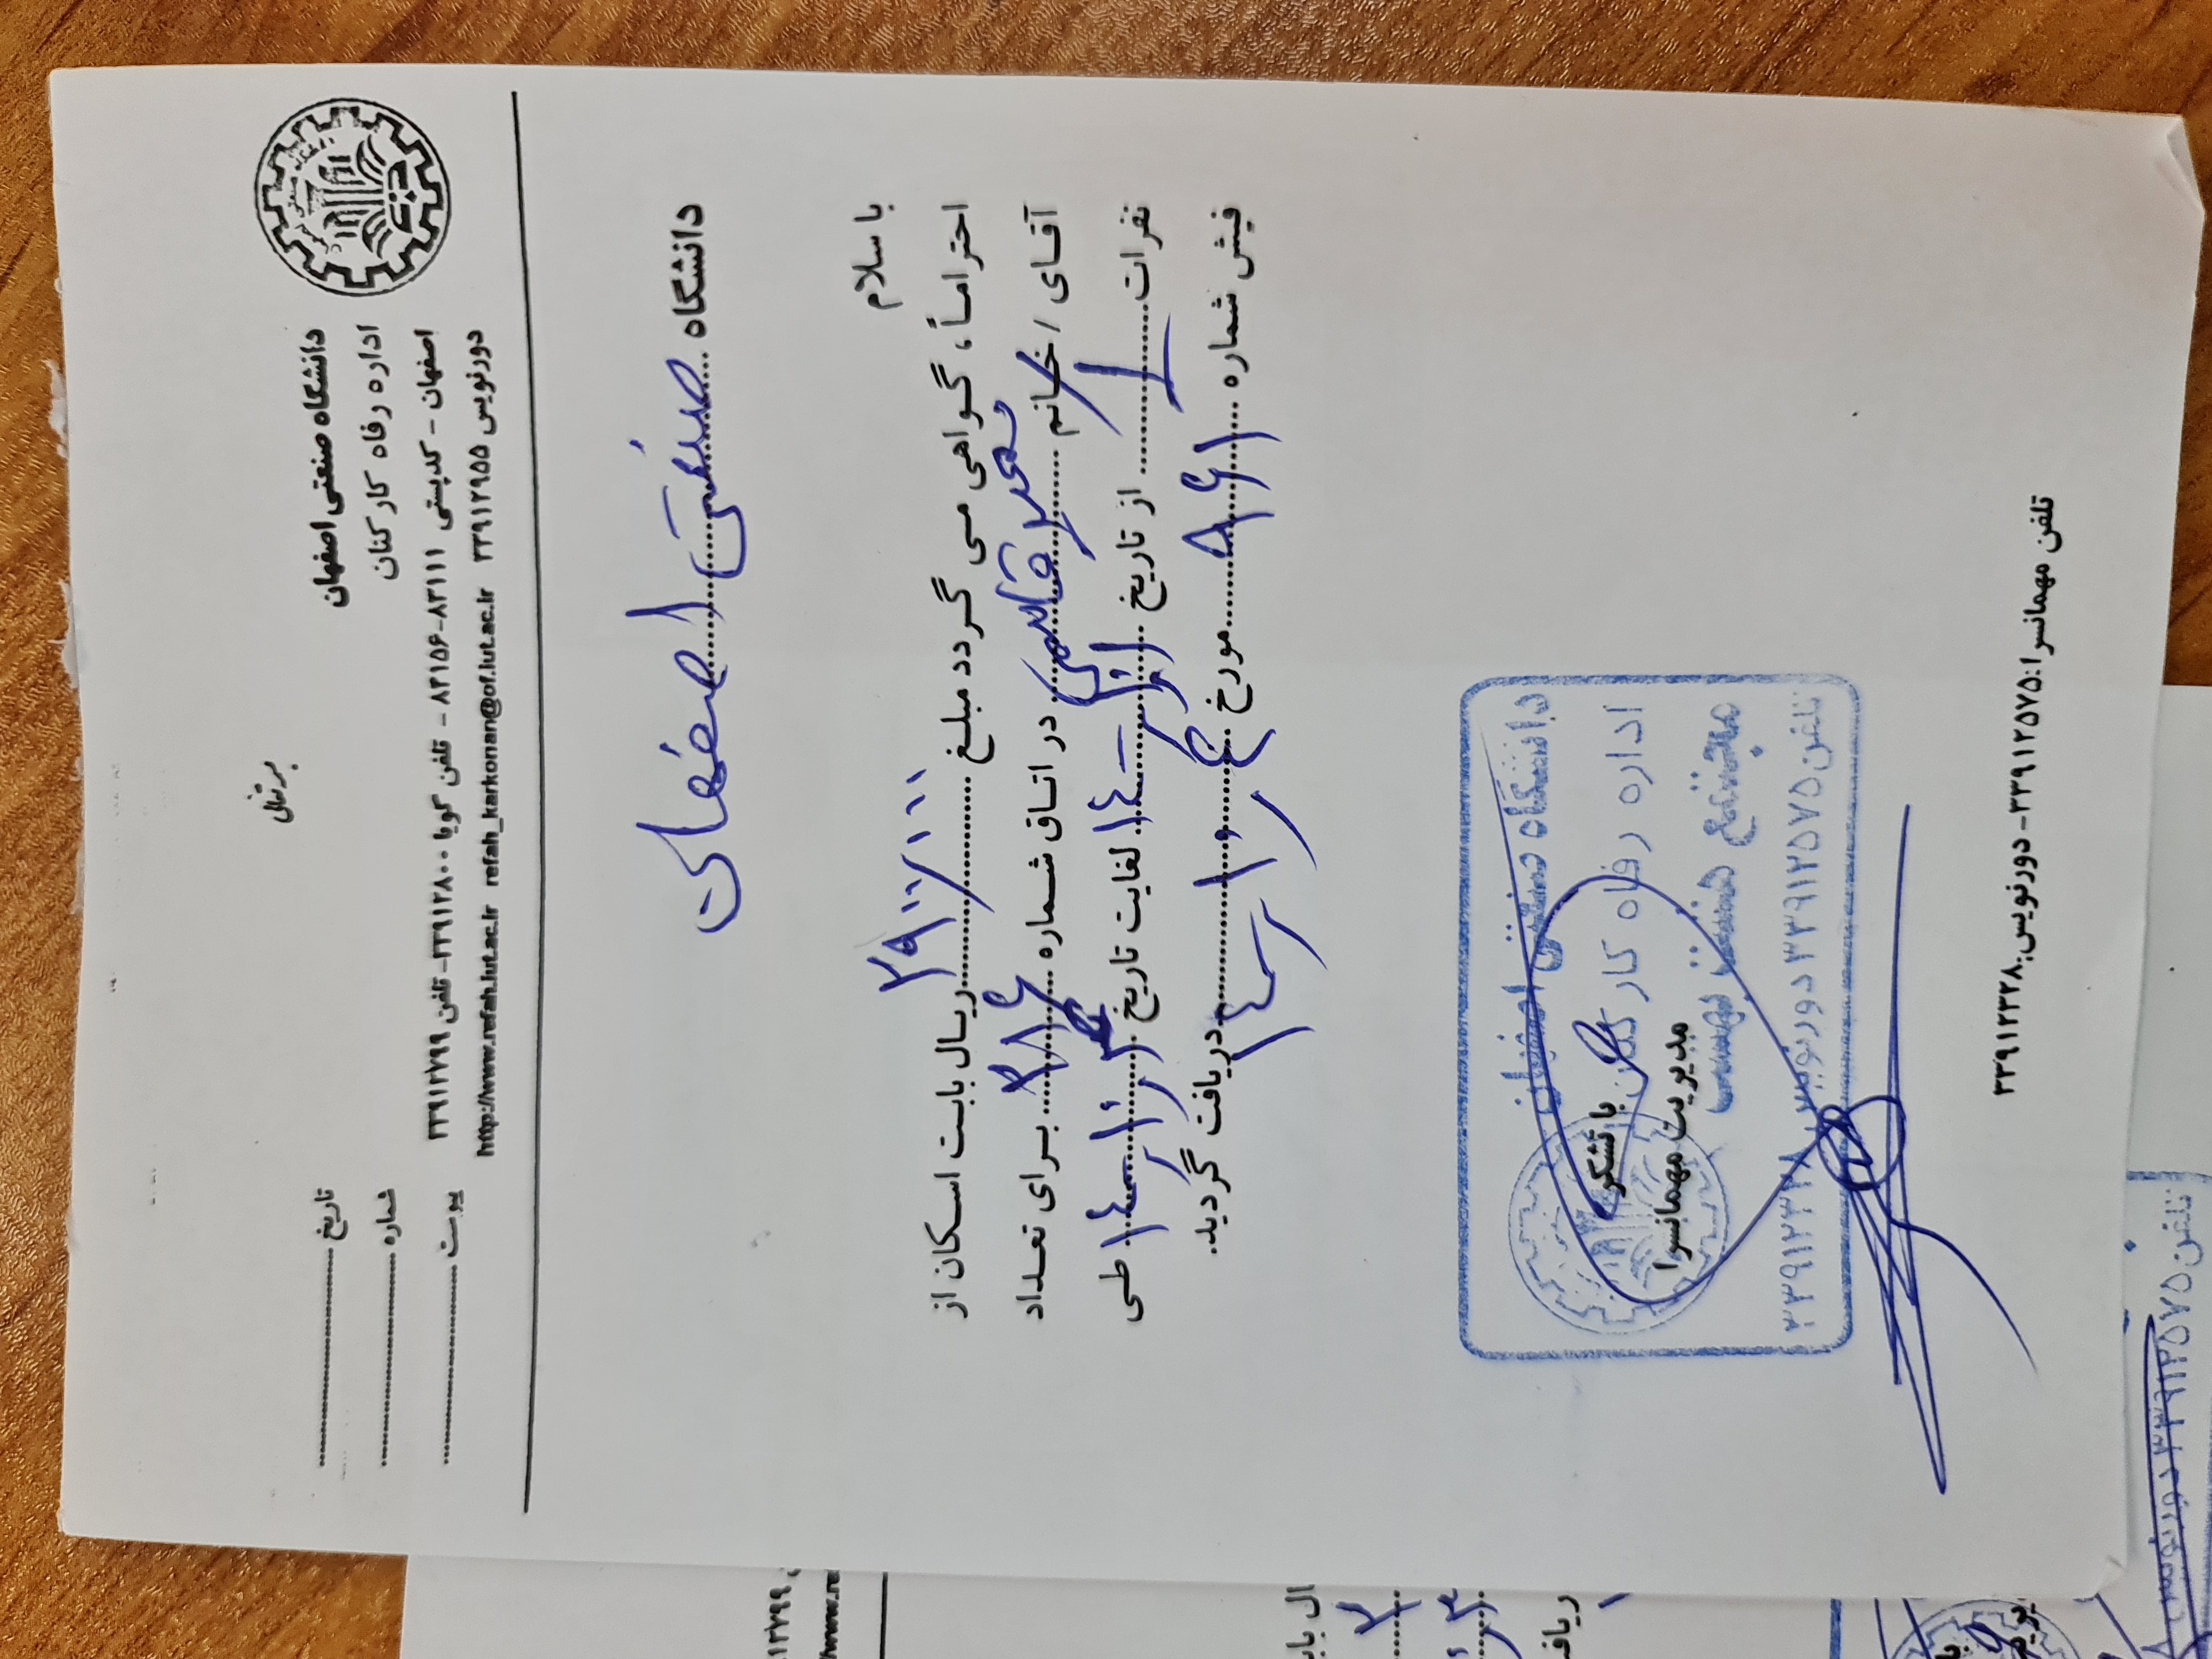 بسمه تعالی
دانشگاه صنعتی اصفهان
اداره رفاه کارکنان
اصفهان - کدپستی ۸۳۱۱۱-۸۴۱۵۶ - تلفن گویا ۳۳۹۱۲۸۰۰- تلفن ۳۳۹۱۲۷۹۹
دورنویس ۳۳۹۱۲۹۵۵ http://www.refah.iut.ac.ir refah_karkonan@of.iut.ac.ir
تاریخ
شماره
پیوست
دانشگاه صنعتی اصفهان
با سلام
احتراماً، گواهی می گردد مبلغ ریال بابت اسکان از
آقای / خانم قاسمی در اتاق شماره برای تعداد
نفرات ۱ از تاریخ لغایت تاریخ طی
فیش شماره ۸۶۱ مورخ دریافت گردید.
دانشگاه صنعتی اصفهان
اداره رفاه کارکنان
مجتمع هشت بهشت
تلفن ۳۳۹۱۲۵۷۵ دورنویس ۳۳۹۱۲۳۲۸
با تشکر
مدیریت مهمانسرا
تلفن مهمانسرا:۳۳۹۱۲۵۷۵- دورنویس:۳۳۹۱۲۳۲۸
تلفن ۳۳۹۱۲۵۷۵ دورنویس